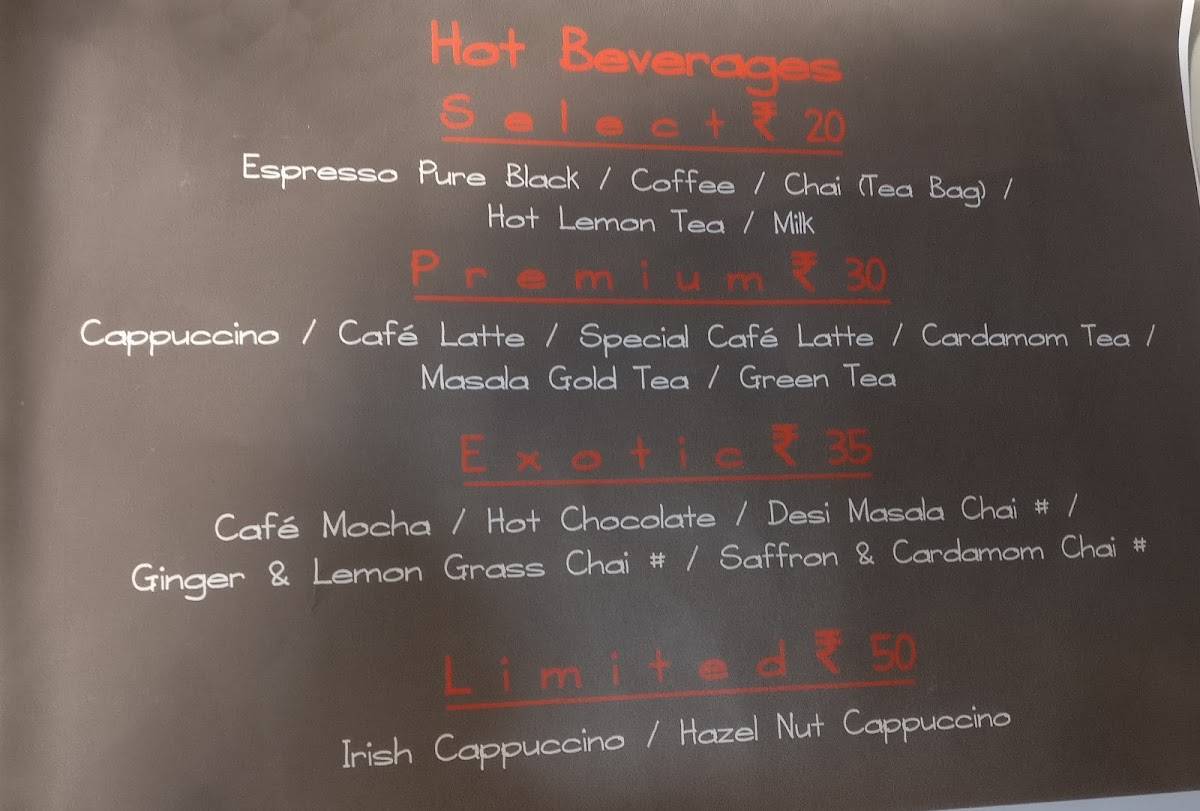 Hot Beverages
Select ₹ 20
Espresso Pure Black / Coffee / Chai (Tea Bag) /
Hot Lemon Tea / Milk
Premium ₹ 30
Cappuccino / Café Latte / Special Café Latte / Cardamom Tea /
Masala Gold Tea / Green Tea
Exotic ₹ 35
Café Mocha / Hot Chocolate / Desi Masala Chai # /
Ginger & Lemon Grass Chai # / Saffron & Cardamom Chai #
Limited ₹ 50
Irish Cappuccino / Hazel Nut Cappuccino